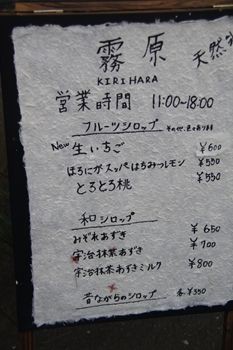 霧原
天然
KIRIHARA
営業時間 11:00~18:00
フルーツシロップ その他、色々あります
New 生いちご ¥600
ほろにがスッパはちみつレモン ¥550
とろとろ桃 ¥550
和シロップ
みぞれあずき ¥650
宇治抹茶あずき ¥700
宇治抹茶あずきミルク ¥800
昔ながらのシロップ 各¥350